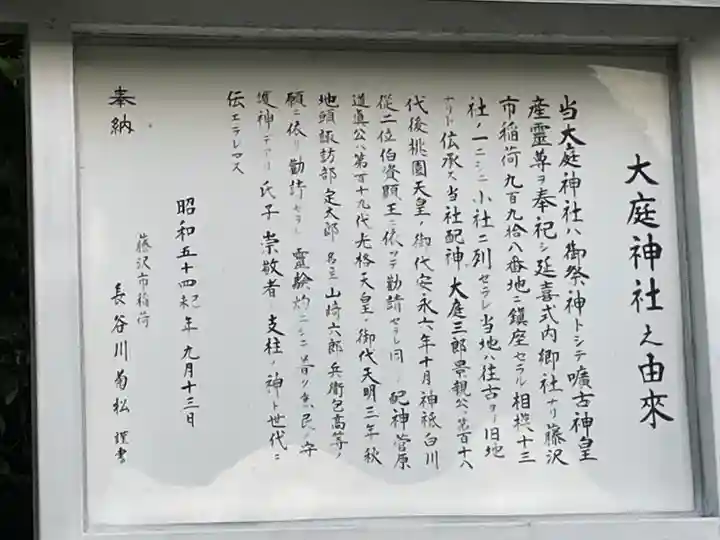 大庭神社之由來
当大庭神社ハ御祭神トシテ嚝古神皇
産霊尊ヲ奉祀シ延喜式内郷社ナリ藤沢
市稲荷九百九拾八番地ニ鎮座セラル相模十三
社ノ一ニシテ小社ニ列セラレ当地ハ往古ヨリ旧地
ナリト伝承ス当社配神大庭三郎景親公ハ第百十八
代後桃園天皇ノ御代安永六年十月神祇白川
従二位伯資顕王ニ依ッテ勧請セラレ同ジ配神菅原
道真公ハ第百十九代光格天皇ノ御代天明三年秋
地頭諏訪部定太郎名主山崎六郎兵衛包高等ノ
願ニ依リ勧請セラレ霊験灼ニシテ昔ヨリ民ノ守
護神デアリ氏子崇敬者ノ支柱ノ神ト世代ニ
伝エラレマス
昭和五十四祀年九月十三日
藤沢市稲荷
長谷川菊松 謹書
奉納